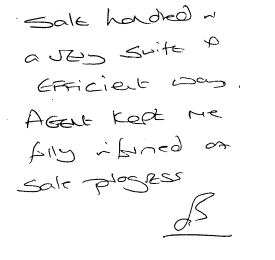 Sale handled in
a very swift &
efficient way.
Agent kept me
fully informed on
sale progress